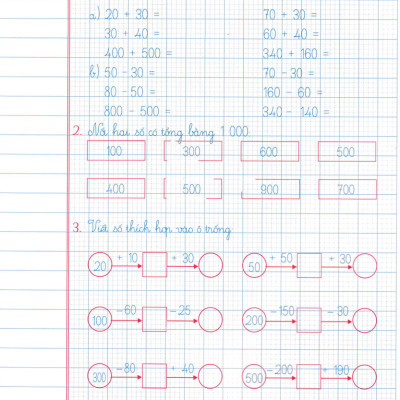 a) 20 + 30 = 70 + 30 =
30 + 40 = 60 + 40 =
400 + 500 = 340 + 160 =
b) 50 - 30 = 70 - 30 =
80 - 50 = 160 - 60 =
800 - 500 = 340 - 140 =
2. Nối hai số có tổng bằng 1 000.
100 300 600 500
400 500 900 700
3. Viết số thích hợp vào ô trống
20 + 10 + 30 50 + 50 + 30
100 - 60 - 25 200 - 150 - 30
300 - 80 + 40 500 - 200 + 190